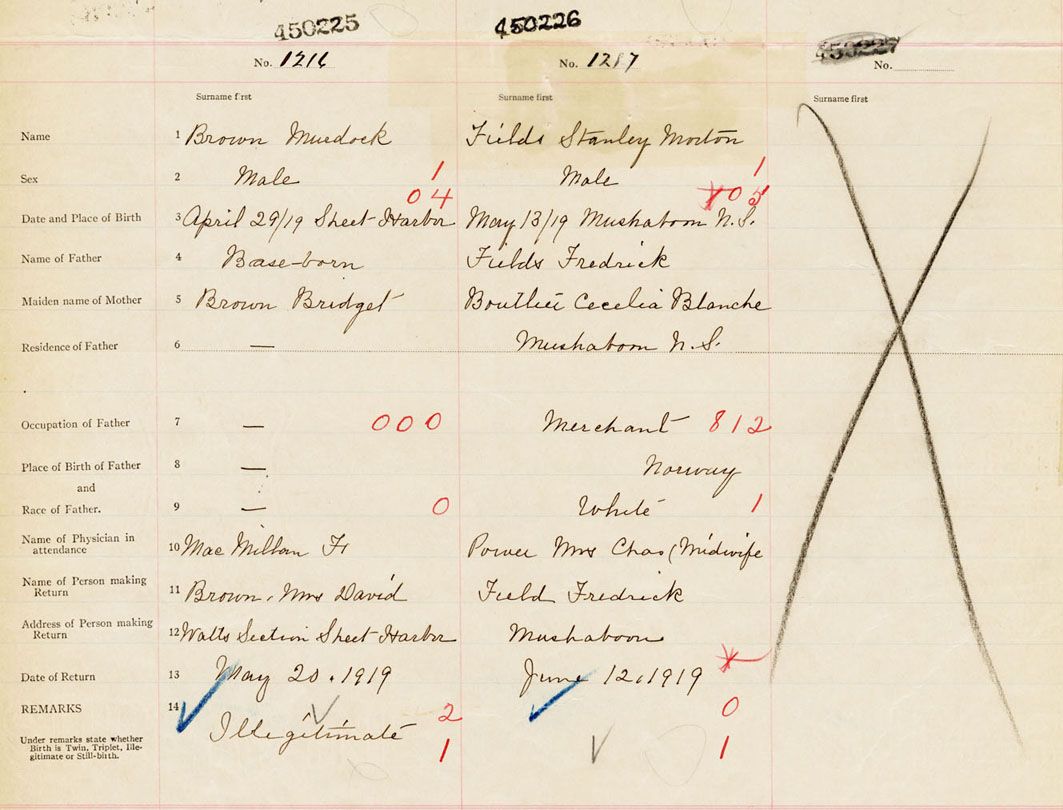 450225 450226 450227
No. 1216 No. 1217 No.
Surname first Surname first Surname first
Name 1 Brown Murdock Fields Stanley Morton
Sex 2 Male 1 Male 1
04 05
Date and Place of Birth 3 April 29/19 Sheet Harbor May 13/19 Mushaboom N.S.
Name of Father 4 Base-born Fields Fredrick
Maiden name of Mother 5 Brown Bridget Boutlier Cecelia Blanche
Residence of Father 6 — Mushaboom N.S.
Occupation of Father 7 — 000 Merchant 812
Place of Birth of Father 8 — Norway
and
Race of Father. 9 — 0 White 1
Name of Physician in
attendance 10 Mac Millan Power Mrs Chas (Midwife
Name of Person making
Return 11 Brown, Mrs David Field Fredrick
Address of Person making
Return 12 Watts Section Sheet Harbor Mushaboom
Date of Return 13 May 20, 1919 June 12, 1919
REMARKS 14 2 0
Illegitimate
Under remarks state whether
Birth is Twin, Triplet, Ille-
gitimate or Still-birth. 1 1